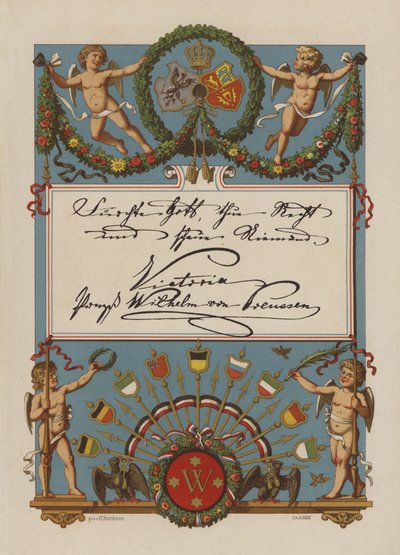 Fürchte Gott, thue Recht
und scheue Niemand.
Victoria
Prinzeß Wilhelm von Preussen
W
H. Bürkner